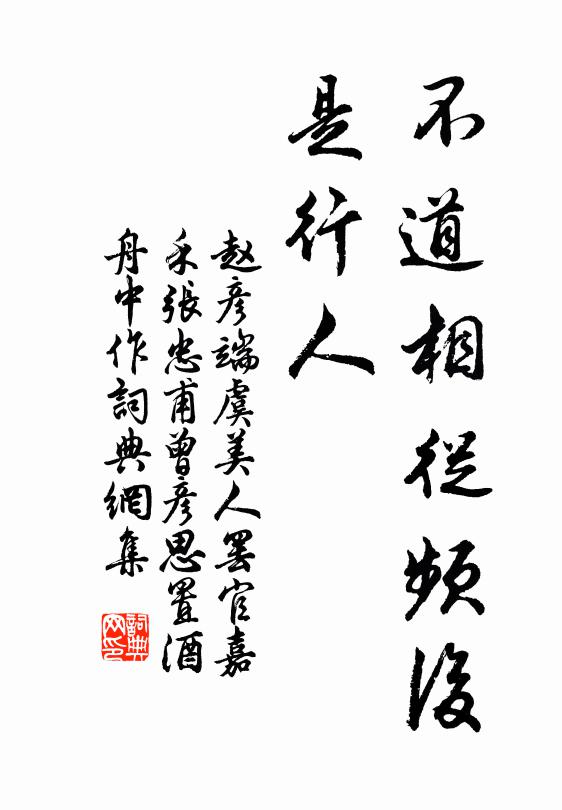 不道相從頻復
是行人
赵彥端虞美人罢官嘉
禾張忠甫曾彥思置酒
舟中作詞典網集
詞典网印